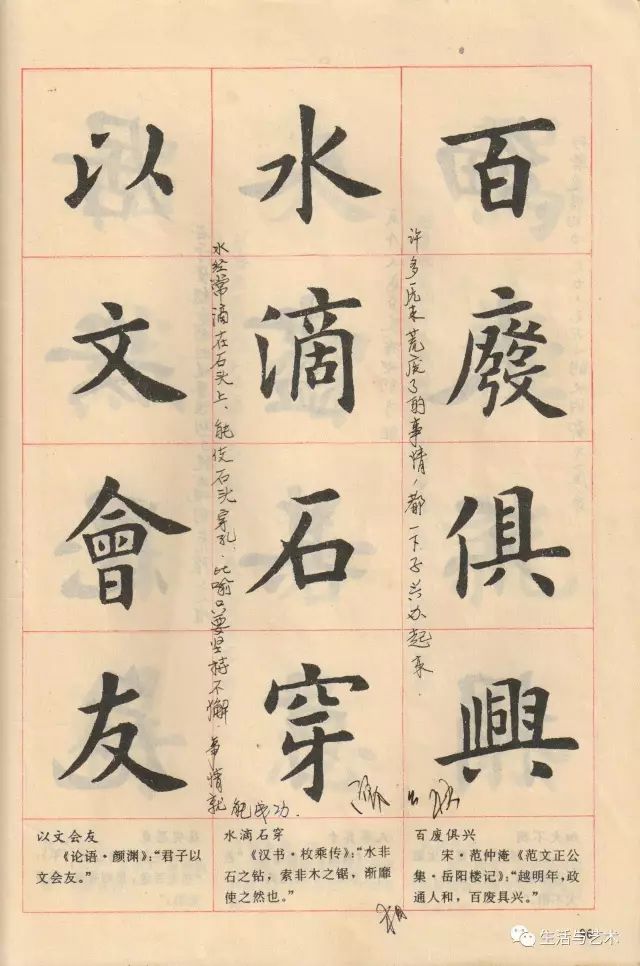 百廢俱興
水滴石穿
以文會友
许多原来荒废了的事情，都一下子兴办起来．
水经常滴在石头上，能使石头穿孔．比喻只要坚持不懈．事情就
能成功．
以文会友
《论语·颜渊》：“君子以
文会友。”
水滴石穿
《汉书·枚乘传》：“水非
石之钻，索非木之锯，渐靡
使之然也。”
百废俱兴
宋·范仲淹《范文正公
集·岳阳楼记》：“越明年，政
通人和，百废具兴。”
生活与艺术